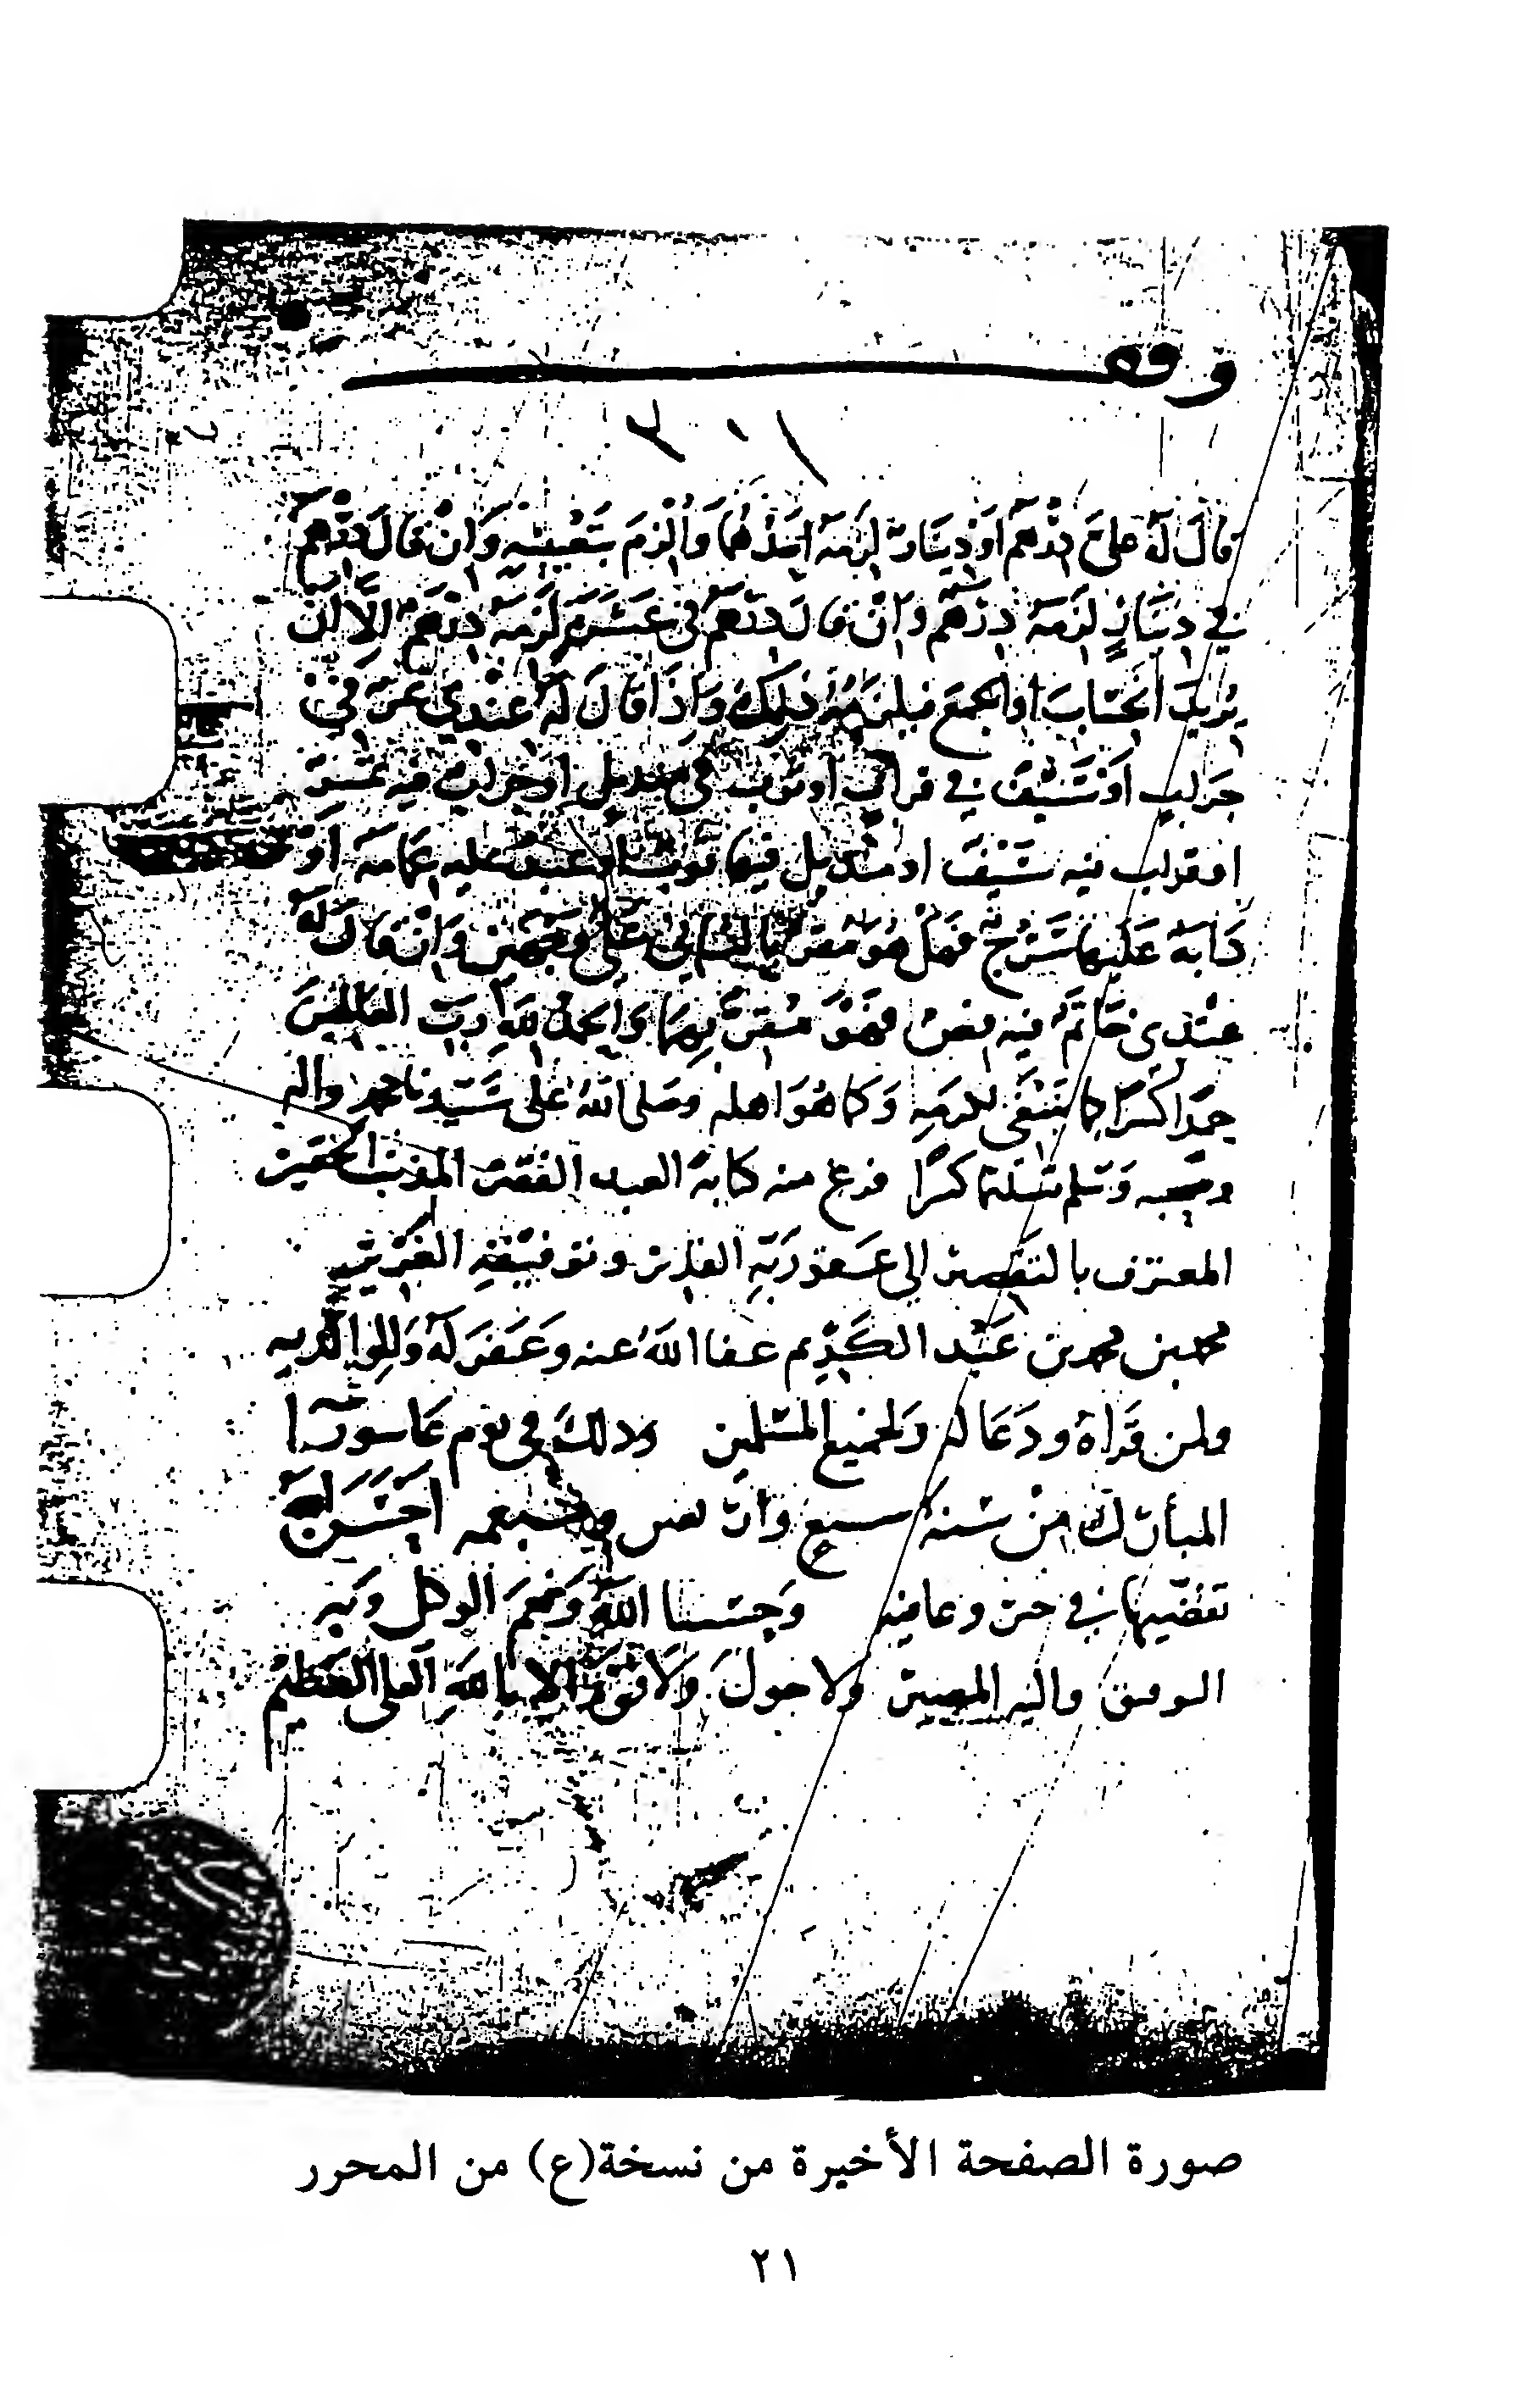 وقف
قال له علي درهم أو دينار لزمه أحدهما وألزم بتعيينه وإن قال درهم
في دينار لزمه درهم وإن قال درهم في عشرة لزمه درهم إلا أن
يريد الحساب أو الجمع فيلزمه ذلك وإذا قال له عندي تمر في
جراب أو سيف في قراب أو ثوب في منديل أو جراب فيه تمر
أو قراب فيه سيف أو منديل فيها ثوب أو عبد عليه عمامة أو
دابة عليها سرج فهل هو مقر بالثاني على وجهين وإن قال له
عندي خاتم فيه فص فهو مقر بهما والحمد لله رب العالمين
حمدا كثيرا كما ينبغي لكرمه وكما هو أهله وصلى الله على سيدنا محمد وآله
وصحبه وسلم تسليما كثيرا فرغ من كتابة العبد الفقير المذنب الحقير
المعترف بالتقصير إلى عفو ربه القدير وتوفيقه
محمد بن محمد بن عبد الكريم عفا الله عنه وغفر له ولوالديه
ولمن قرأه ودعا له ولجميع المسلمين وذلك في يوم عاشورا
المبارك من سنة سبع وأربعين وسبعمه أحسن الله
تقضيها في خير وعافية وحسبنا الله ونعم الوكيل وبه
التوفيق وإليه المصير ولا حول ولا قوة إلا بالله العلي العظيم
صورة الصفحة الأخيرة من نسخة(ع) من المحرر
٢١